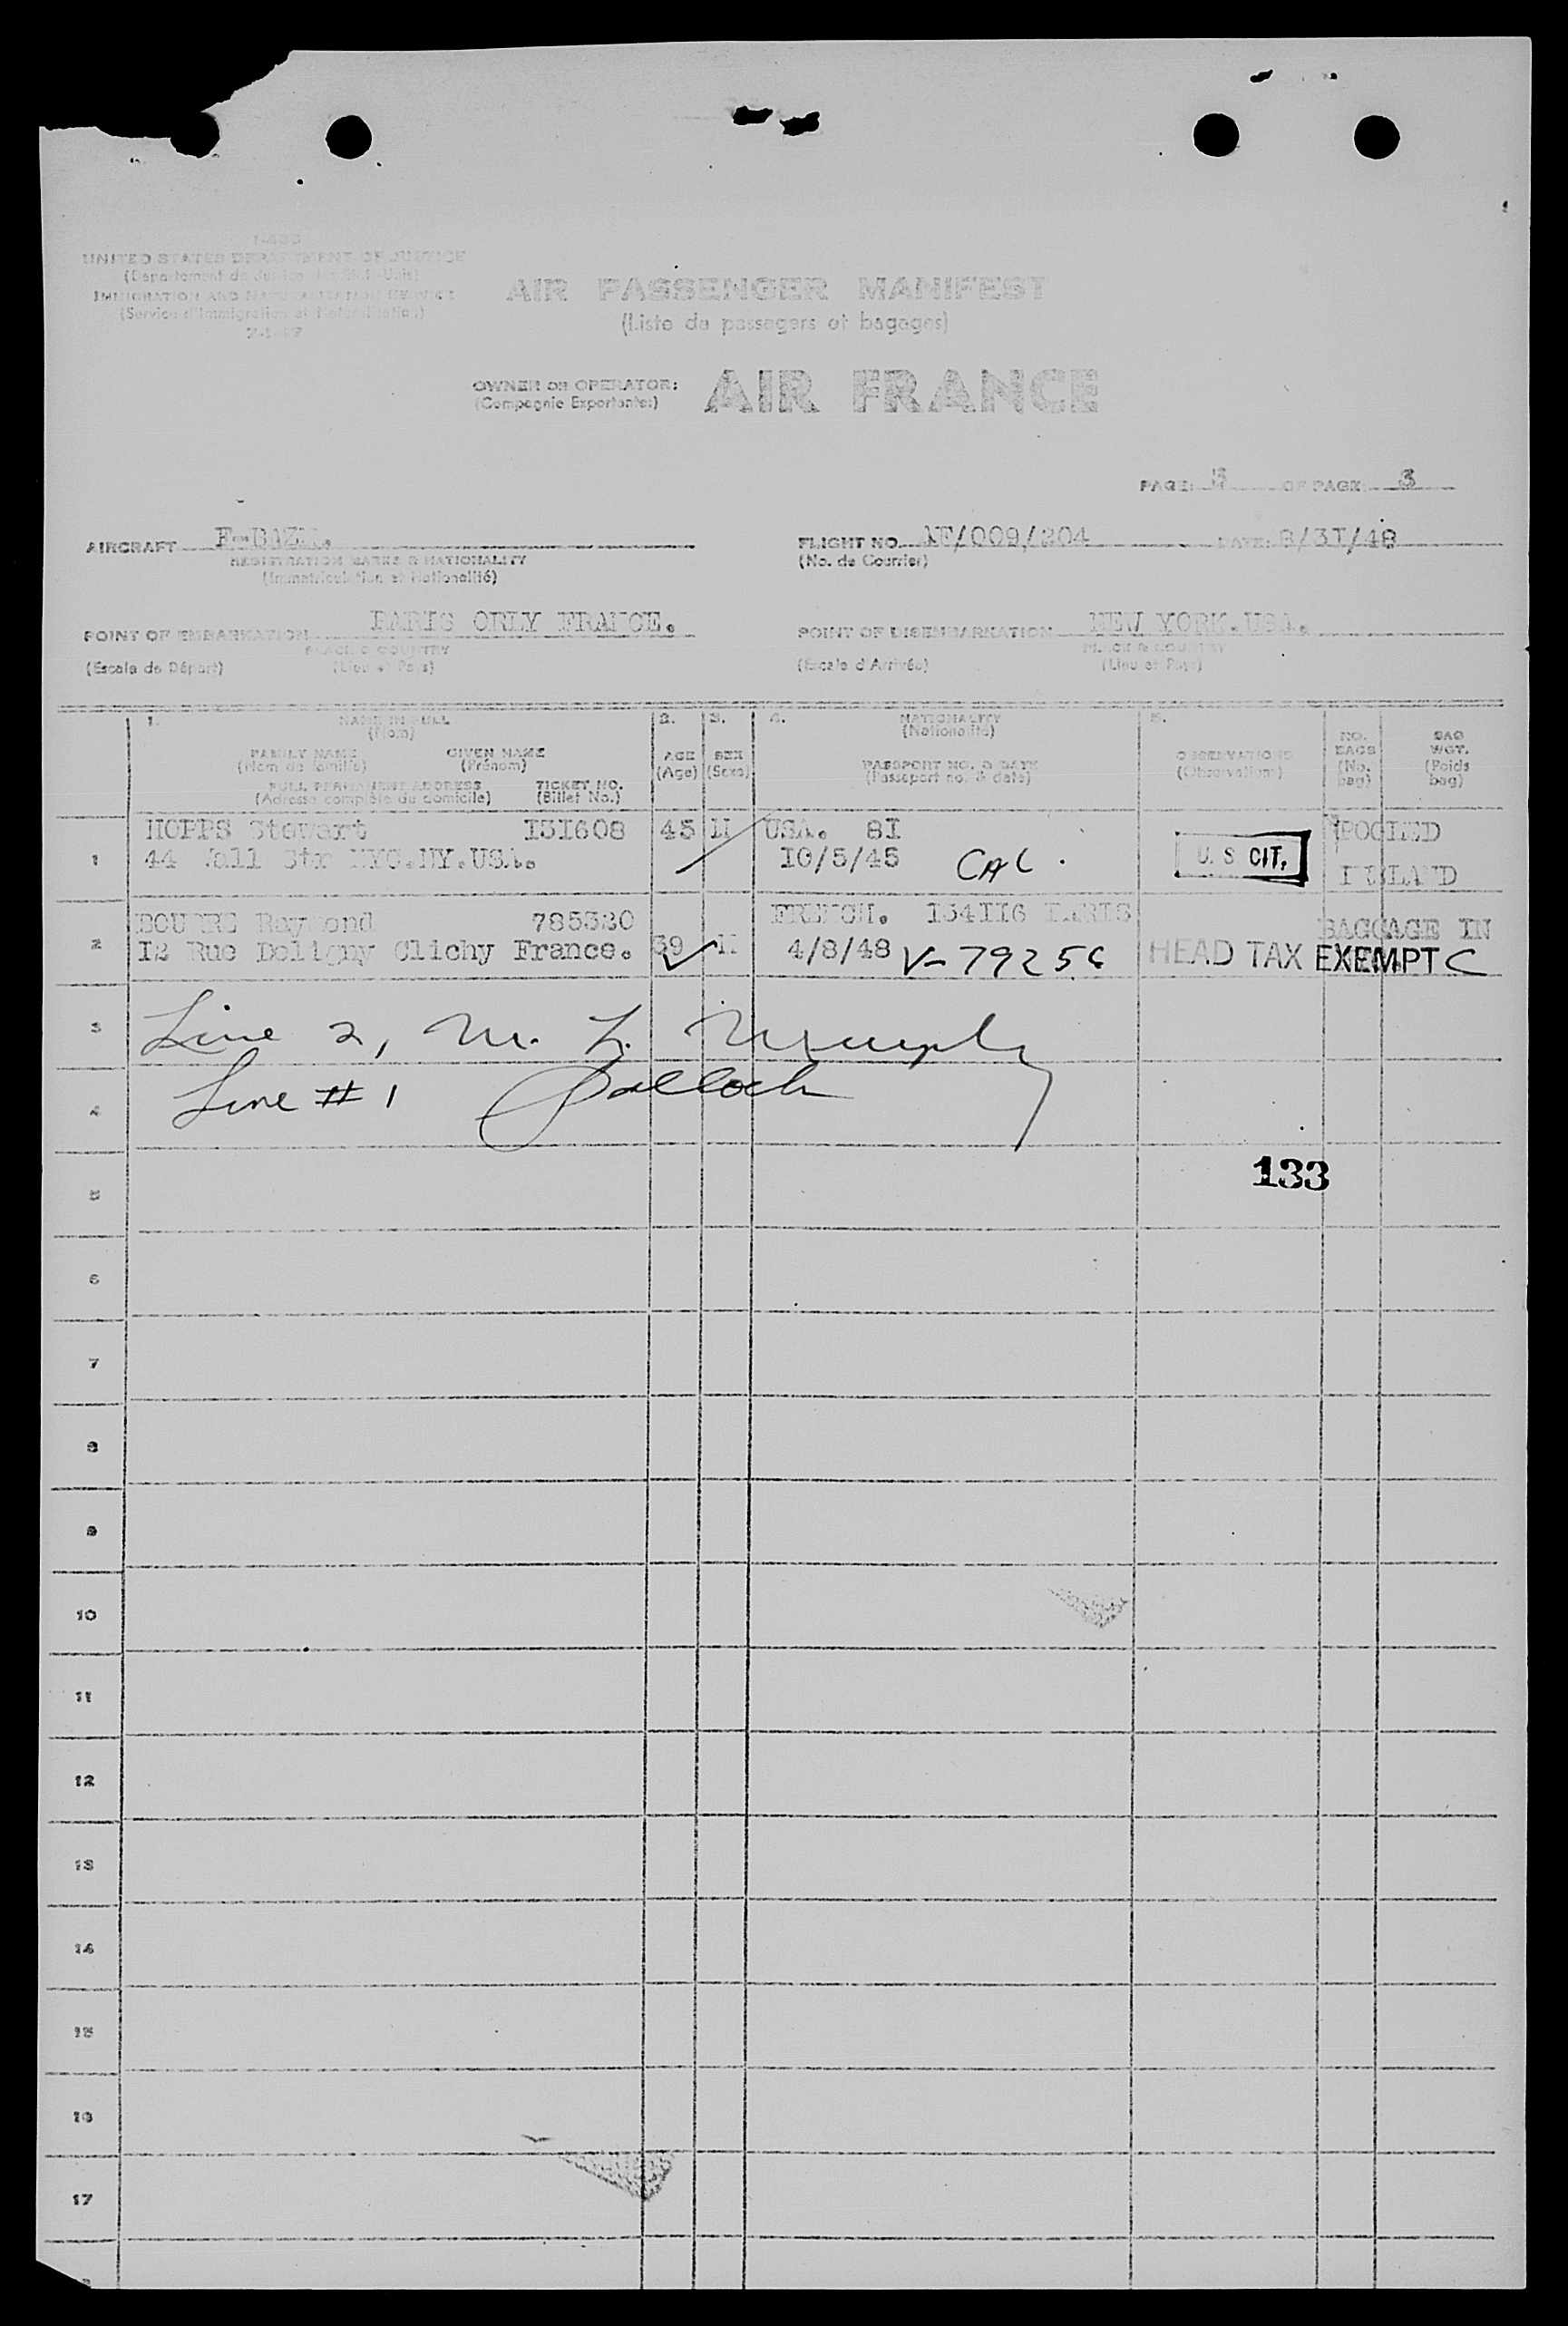 UNITED STATES DEPARTMENT OF JUSTICE
IMMIGRATION AND NATURALIZATION SERVICE
(Service d'Immigration et Naturalisation)
AIR PASSENGER MANIFEST
(Liste de passagers et bagages)
OWNER OR OPERATOR: AIR FRANCE
(Compagnie Exportante:)
PAGE: OF PAGE 3
AIRCRAFT
REGISTRATION MARKS & NATIONALITY
(Immatriculation et Nationalité)
FLIGHT NO. AF/009/204 DATE: 8/3I/48
(No. de Courrier)
POINT OF EMBARKATION PARIS ORLY FRANCE.
PLACE & COUNTRY
(Escale de Départ) (Lieu et Pays)
POINT OF DISEMBARKATION NEW YORK.USA.
PLACE & COUNTRY
(Escale d'Arrivée) (Lieu et Pays)
1. NAME IN FULL 2. 3. 4. NATIONALITY 5.
(Nom) (Nationalité)
FAMILY NAME GIVEN NAME AGE SEX OBSERVATIONS NO. BAGS BAG WGT.
(Nom de famille) (Prénom) (Age) (Sexe) PASSPORT NO. & DATE (Observations) (No. bag) (Poids bag)
FULL PERMANENT ADDRESS TICKET NO. (Passeport no. & date)
(Adresse complète du domicile) (Billet No.)
1 HOPPS Stewart I3I608 45 M USA. 8I U. S CIT. POOLED
44 Wall Str NYC.NY.USA. I0/5/45 CAL.
2 Raymond 785320 39 M FRENCH. I34II6 PARIS BAGGAGE IN
I2 Rue Deligny Clichy France. 4/8/48 V-79256 HEAD TAX EXEMPT C
3 Line 2, M. L. Murphy
4 Line #1
133
5
6
7
8
9
10
11
12
13
14
15
16
17